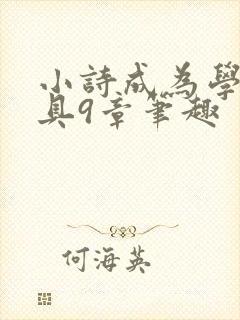 小詩成為學
具9章筆趣
何海英